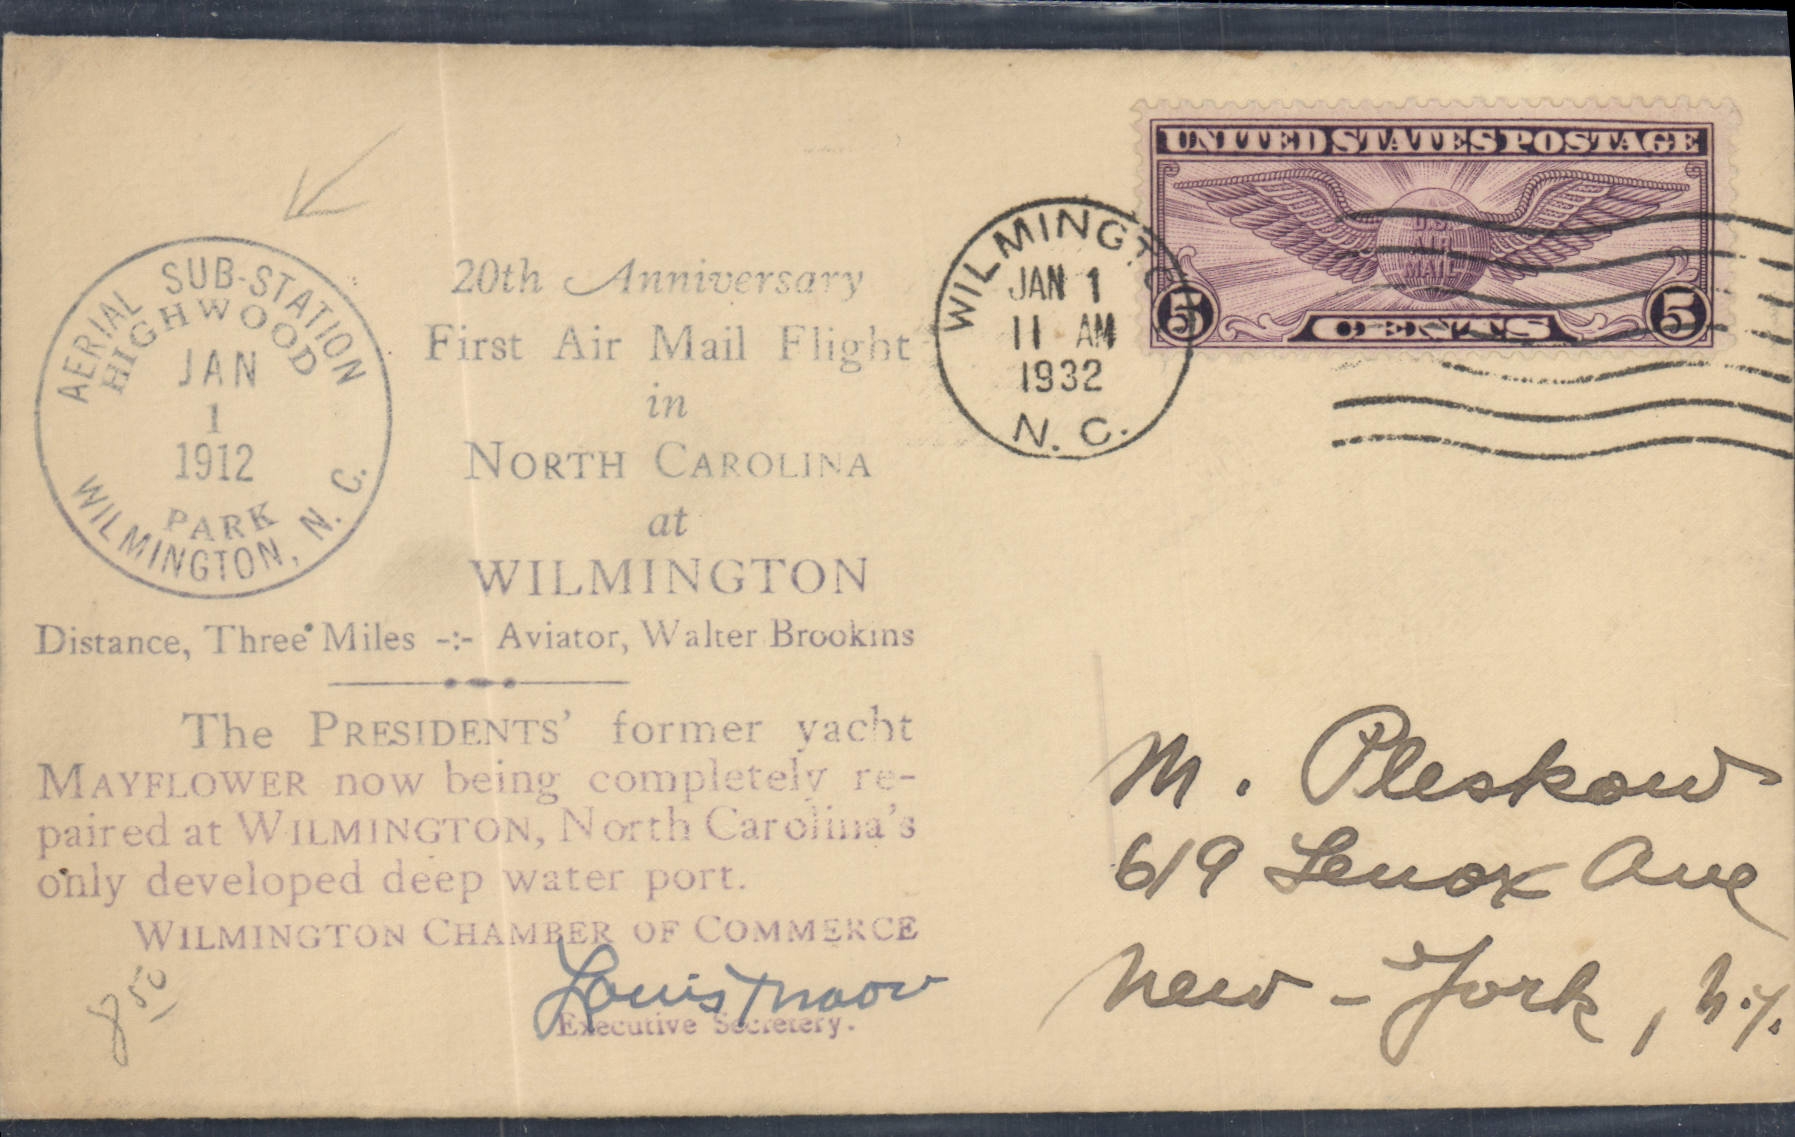 UNITED STATES POSTAGE
U.S.
AIR
MAIL
5 CENTS 5
WILMINGTON
JAN 1
11 AM
1932
N. C.
AERIAL SUB-STATION
HIGHWOOD
JAN
1
1912
PARK
WILMINGTON, N. C.
20th Anniversary
First Air Mail Flight
in
NORTH CAROLINA
at
WILMINGTON
Distance, Three Miles -:- Aviator, Walter Brookins
The PRESIDENTS' former yacht
MAYFLOWER now being completely re-
paired at WILMINGTON, North Carolina's
only developed deep water port.
WILMINGTON CHAMBER OF COMMERCE
Louis T Moore
Executive Secretery.
8 50
M. Pleskow
619 Lenox Ave
New-York, N.Y.